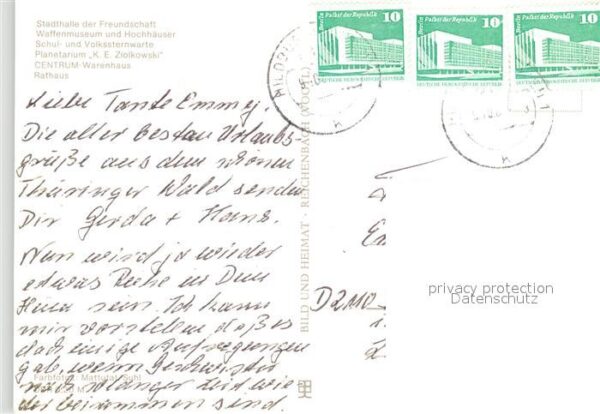 Stadthalle der Freundschaft
Waffenmuseum und Hochhäuser
Schul- und Volkssternwarte
Planetarium „K. E. Ziolkowski"
CENTRUM-Warenhaus
Rathaus
Berlin Palast der Republik 10
DEUTSCHE DEMOKRATISCHE REPUBLIK
Berlin Palast der Republik 10
DEUTSCHE DEMOKRATISCHE REPUBLIK
Berlin Palast der Republik 10
Liebe Tante Emmy.
Die aller besten Urlaubs-
grüße aus dem schönen
Thüringer Wald senden
Dir Gerda + Hans.
Nun wird ja wieder
etwas Ruhe in Dein
sein. Ich kann
mir vorstellen daß es
doch einige Aufregungen
gab, wenn Geschwister
nach langer Zeit wie
der beisammen sind.
Farbfoto: Suhl
BILD UND HEIMAT · REICHENBACH (VOGTL)
D2110
privacy protection
Datenschutz